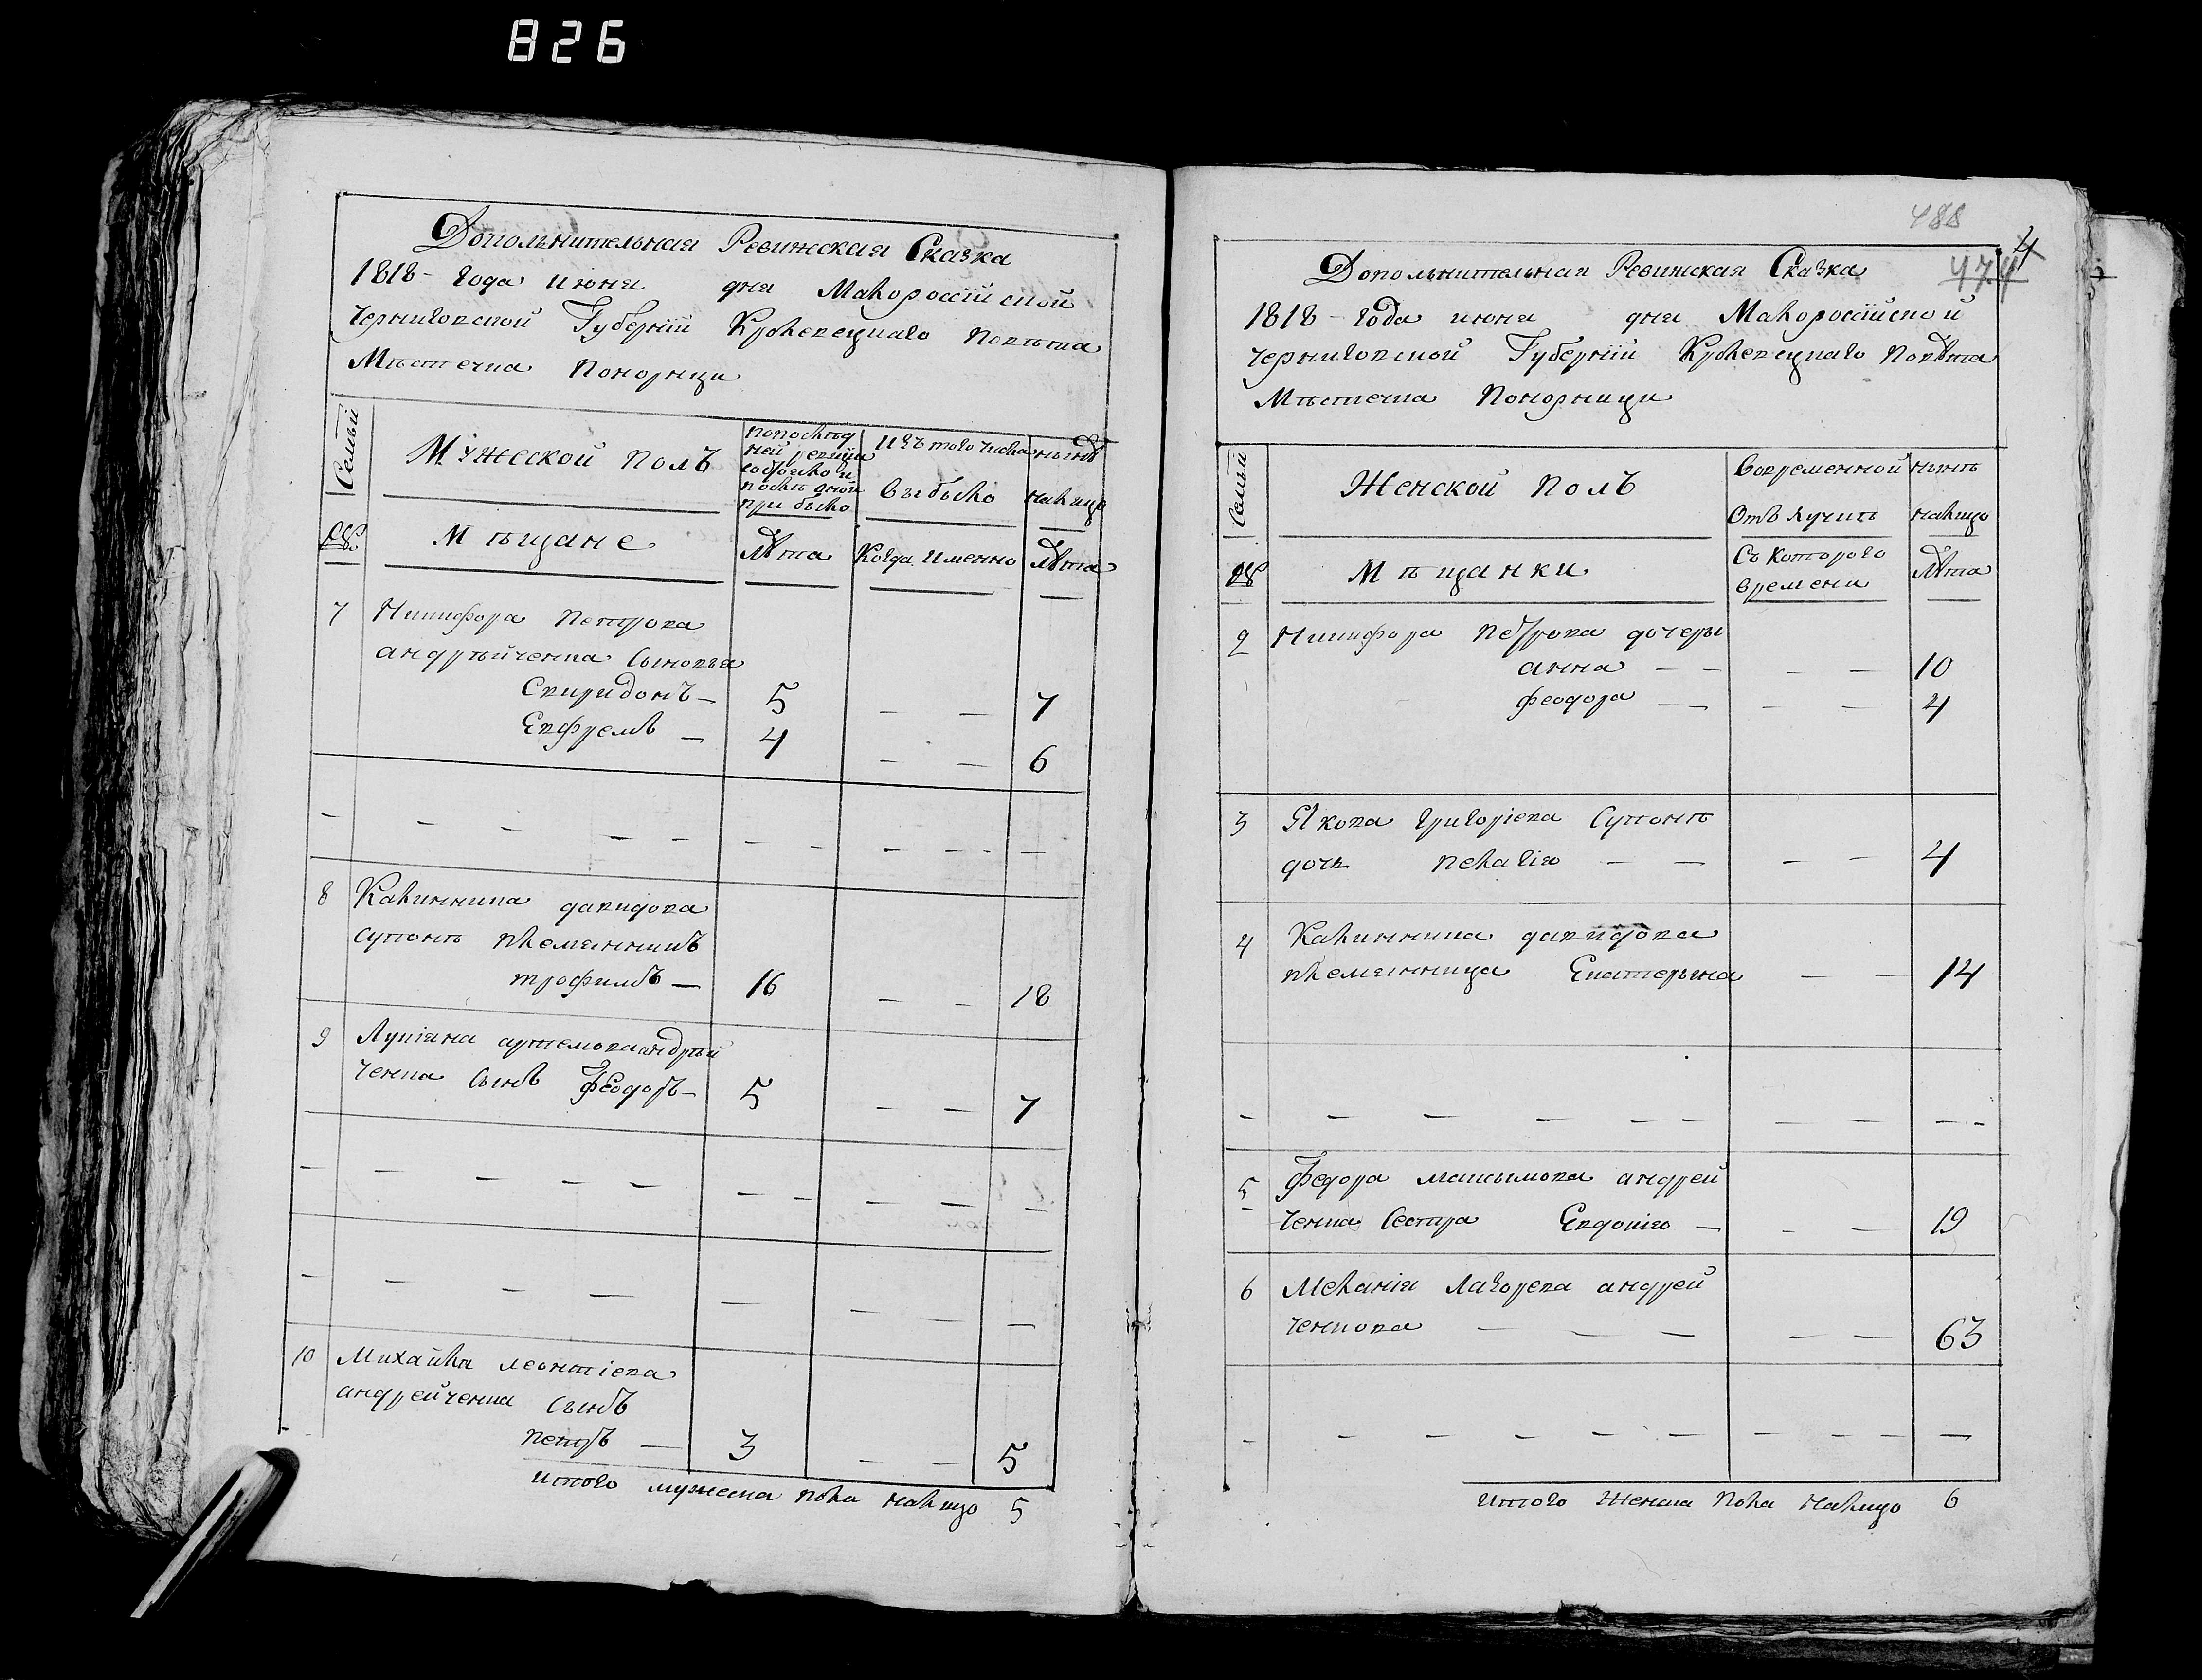 826
Дополнительная Ревижская Сказка
1818- года июня дня Малороссійской
Черниговской Губерніи Кролевецкаго повѣта
Мѣстечка Понорници
Семьи
Мужеской полъ
по послѣд
ней ревизіи
состояло и
послѣ оной
прибыло
Изъ того числа
выбыло
нынѣ
налицо
№
Мѣщане
лѣта
Когда именно
лѣта
7 Никифора Петрова
андрѣйченка сыновья
Спиридонъ — 5 — — 7
Евфремъ — 4 — — 6
8 Калинника давидова
супонѣ племянникъ
трофимъ — 16 — — 18
9 Лукіяна артемова андрѣй
ченка сынъ Феодоръ — 5 — — 7
10 Михайла леонтіева
андрейченка сынъ
петръ — 3 — — 5
итого мужеска пола налицо 5
488
4
474
Дополнительная Ревижская Сказка
1818- года июня дня Малороссійской
черниговской Губерніи Кролевецкаго повѣта
Мѣстечка Понорници
Семьи
Женской полъ
Во временной
Отълучкѣ
нынѣ
налицо
№
Мѣщанки
Съ которого
времени
лѣта
2 Никифора петрова дочеры
анна — — — — 10
феодора — — — — 4
3 Якова григоріева Супонѣ
дочь пелагія — — — — 4
4 Калинника давидова
племянница Екатерына — — 14
5 Федора максымова андрей
ченка сестра Евдокія — — — 19
6 Меланія лазорева андрей
ченкова — — — — — 63
итого женска пола налицо 6